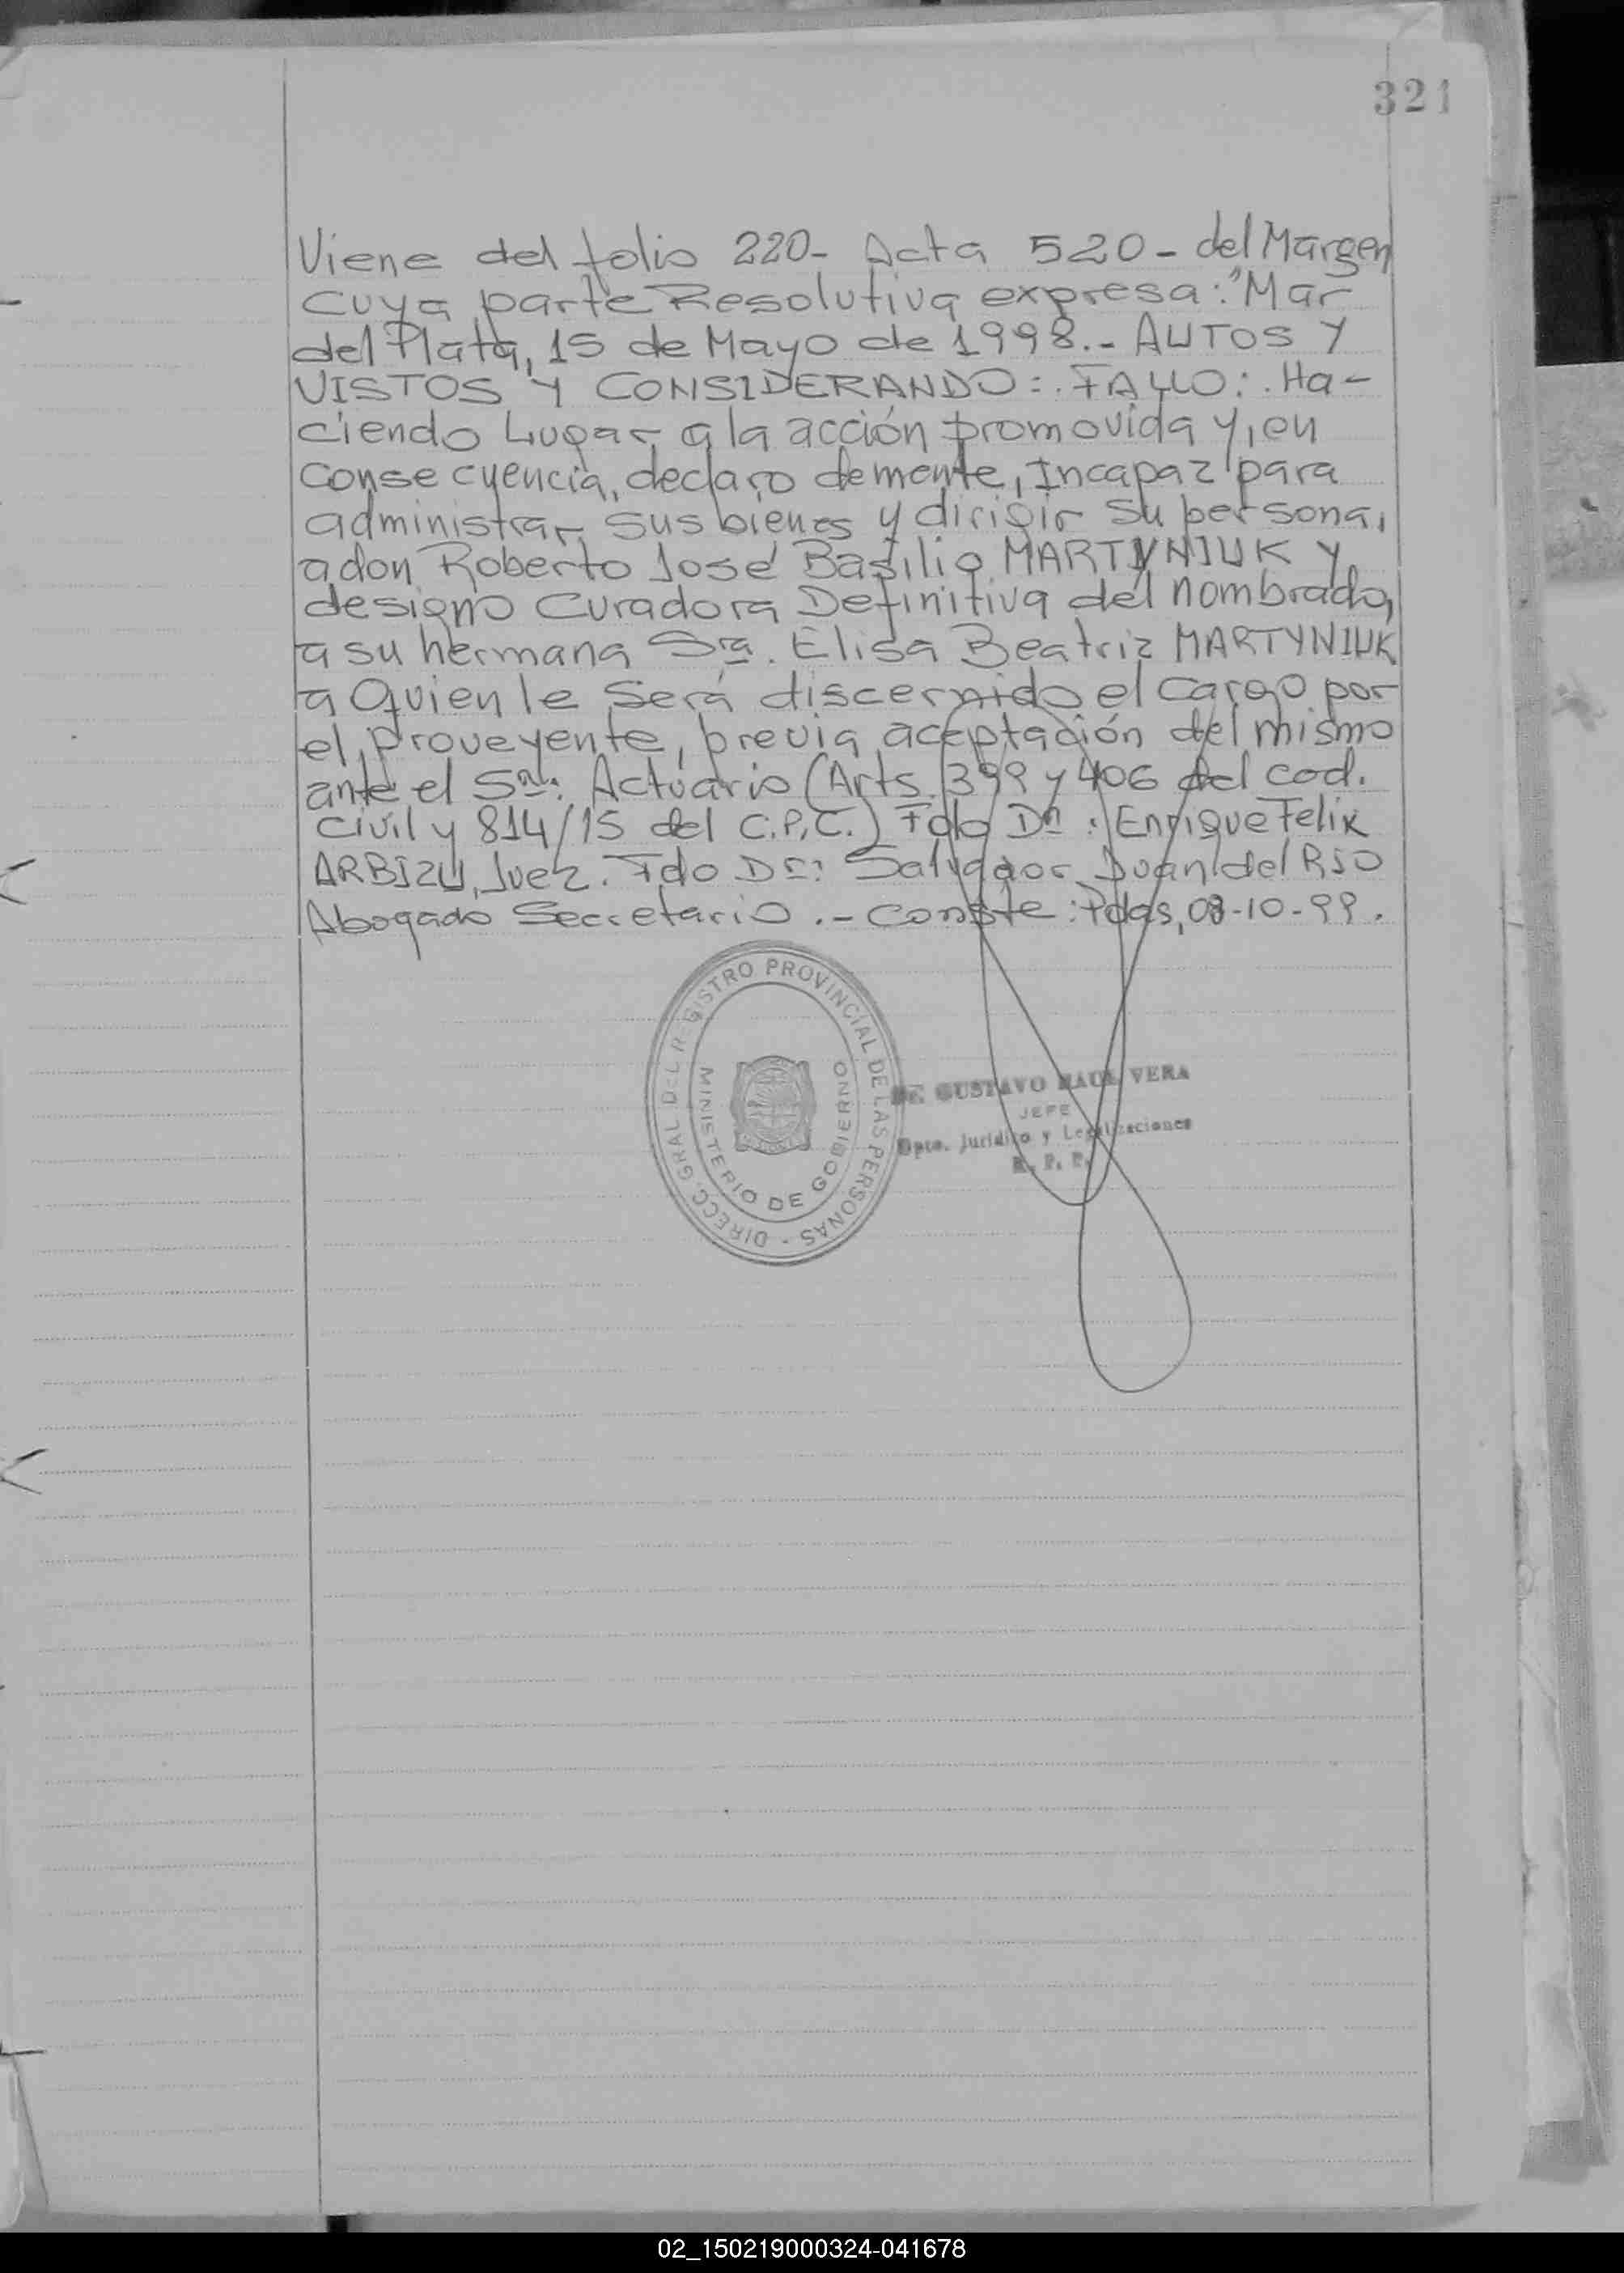 321
Viene del folio 220- Acta 520- del Margen
cuya parte Resolutiva expresa: "Mar
del Plata, 15 de Mayo de 1998.- AUTOS Y
VISTOS Y CONSIDERANDO:. FALLO:. Ha-
ciendo Lugar a la acción promovida y, en
consecuencia, declaro demente, Incapaz para
administrar sus bienes y dirigir su persona,
a don Roberto José Basilio MARTYNIUK y
designo Curadora Definitiva del nombrado,
a su hermana Sra. Elisa Beatriz MARTYNIUK
a Quien le Será discernido el cargo por
el proveyente, previa aceptación del mismo
ante el Sr: Actuario (Arts. 399 y 406 del cod.
civil y 814/15 del C.P.C.) Fdo Dr: Enrique Felix
ARBIZU, Juez. Fdo Dr: Salvador Juan del RIO
Abogado Secretario.- Conste: Pdas, 08-10-99.
DIRECC. GRAL DEL REGISTRO PROVINCIAL DE LAS PERSONAS -
MINISTERIO DE GOBIERNO
GUSTAVO RAUL VERA
JEFE
Dpto. Jurídico y Legalizaciones
R. P. P.
02_150219000324-041678